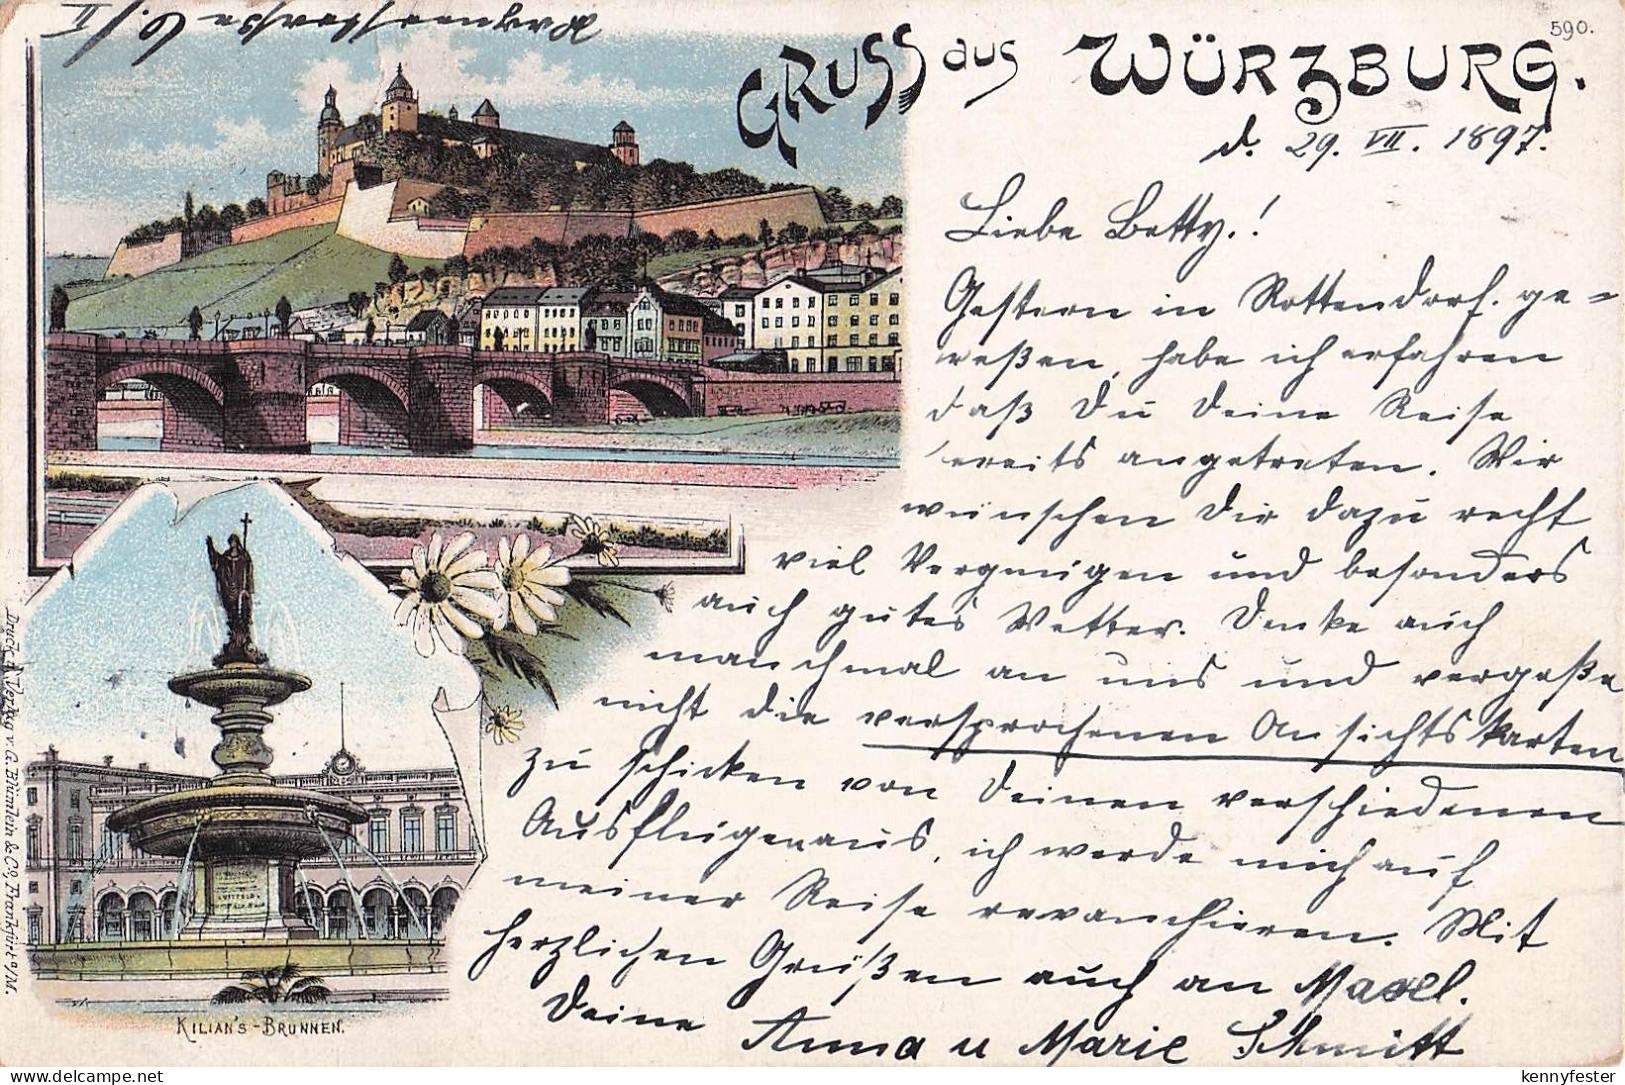 590.
GRUSS aus WÜRZBURG.
d. 29. VII. 1897.
Liebe Betty.!
Gestern in Rottendorf. ge=
weßen, habe ich erfahren
daß Du Deine Reise
bereits angetreten. Wir
wünschen Dir dazu recht
viel Vergnügen und besonders
auch gutes Wetter. Denke auch
manchmal an uns und vergeße
nicht die versprochenen Ansichtskarten
zu schicken von Deinen verschiedenen
Ausflügen aus, ich werde mich auf
meiner Reise revanchieren. Mit
herzlichen Grüßen auch an
Deine Anna u Marie Schmitt
KILIAN'S-BRUNNEN.
Druck & Verlag v. G. Blümlein & Co, Frankfurt a/M.
delcampe.net
kennyfester